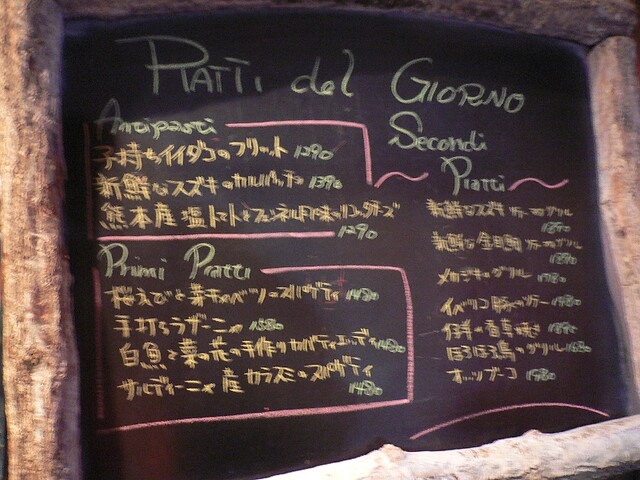 PIATTI del GIORNO
Antipasti
子持ちイイダコのフリット 1290
新鮮なスズキのカルパッチョ 1390
熊本産塩トマトと
1290
Primi Piatti
桜えびと菜キャベツのスパゲティ 1480
手打ちラザーニャ 1580
白魚と菜の花の手作りカバティエッディ 1480
サルディーニャ産カラスミのスパゲティ
1480
Secondi
Piatti
新鮮なスズキ
新鮮な金目鯛
メカジキのグリル 1980
イベリコ豚のソテー 1980
仔羊の香草焼き
ほろほろ鳥のグリル 1680
オッソブーコ 1980